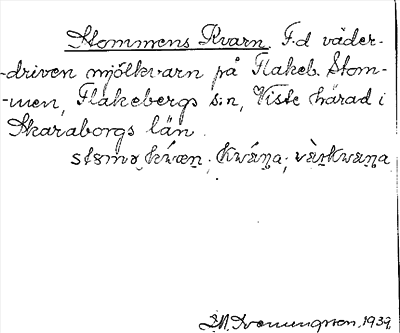 Stommens Kvarn. F.d väder-
-driven mjölkvarn på Flakeb. Stom-
-men, Flakebergs s:n, Viste härad i
Skaraborgs län.
stǫmǝ kvæṇ; kwáṇa; vàṇkwaṇa
1939